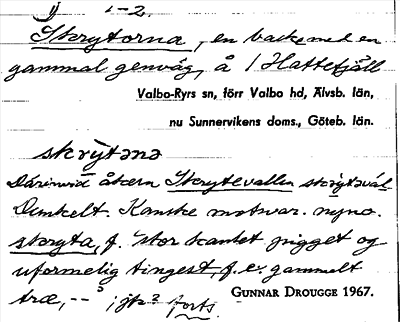 1-2.
Skrytorna, en backe med en
gammal genväg, å 1 Hattefjäll
Valbo-Ryrs sn, förr Valbo hd, Älvsb. län,
nu Sunnervikens doms., Göteb. län.
skrỳtənə
Därinvid åkern Skrytevallen skrỳtəvál
Dunkelt. Kanske motsvar. nyno.
skryta, f. stor kantet pigget og
uformelig tingest, f. e. gammelt
træ, -- ; jfr? forts.
GUNNAR DROUGGE 1967.